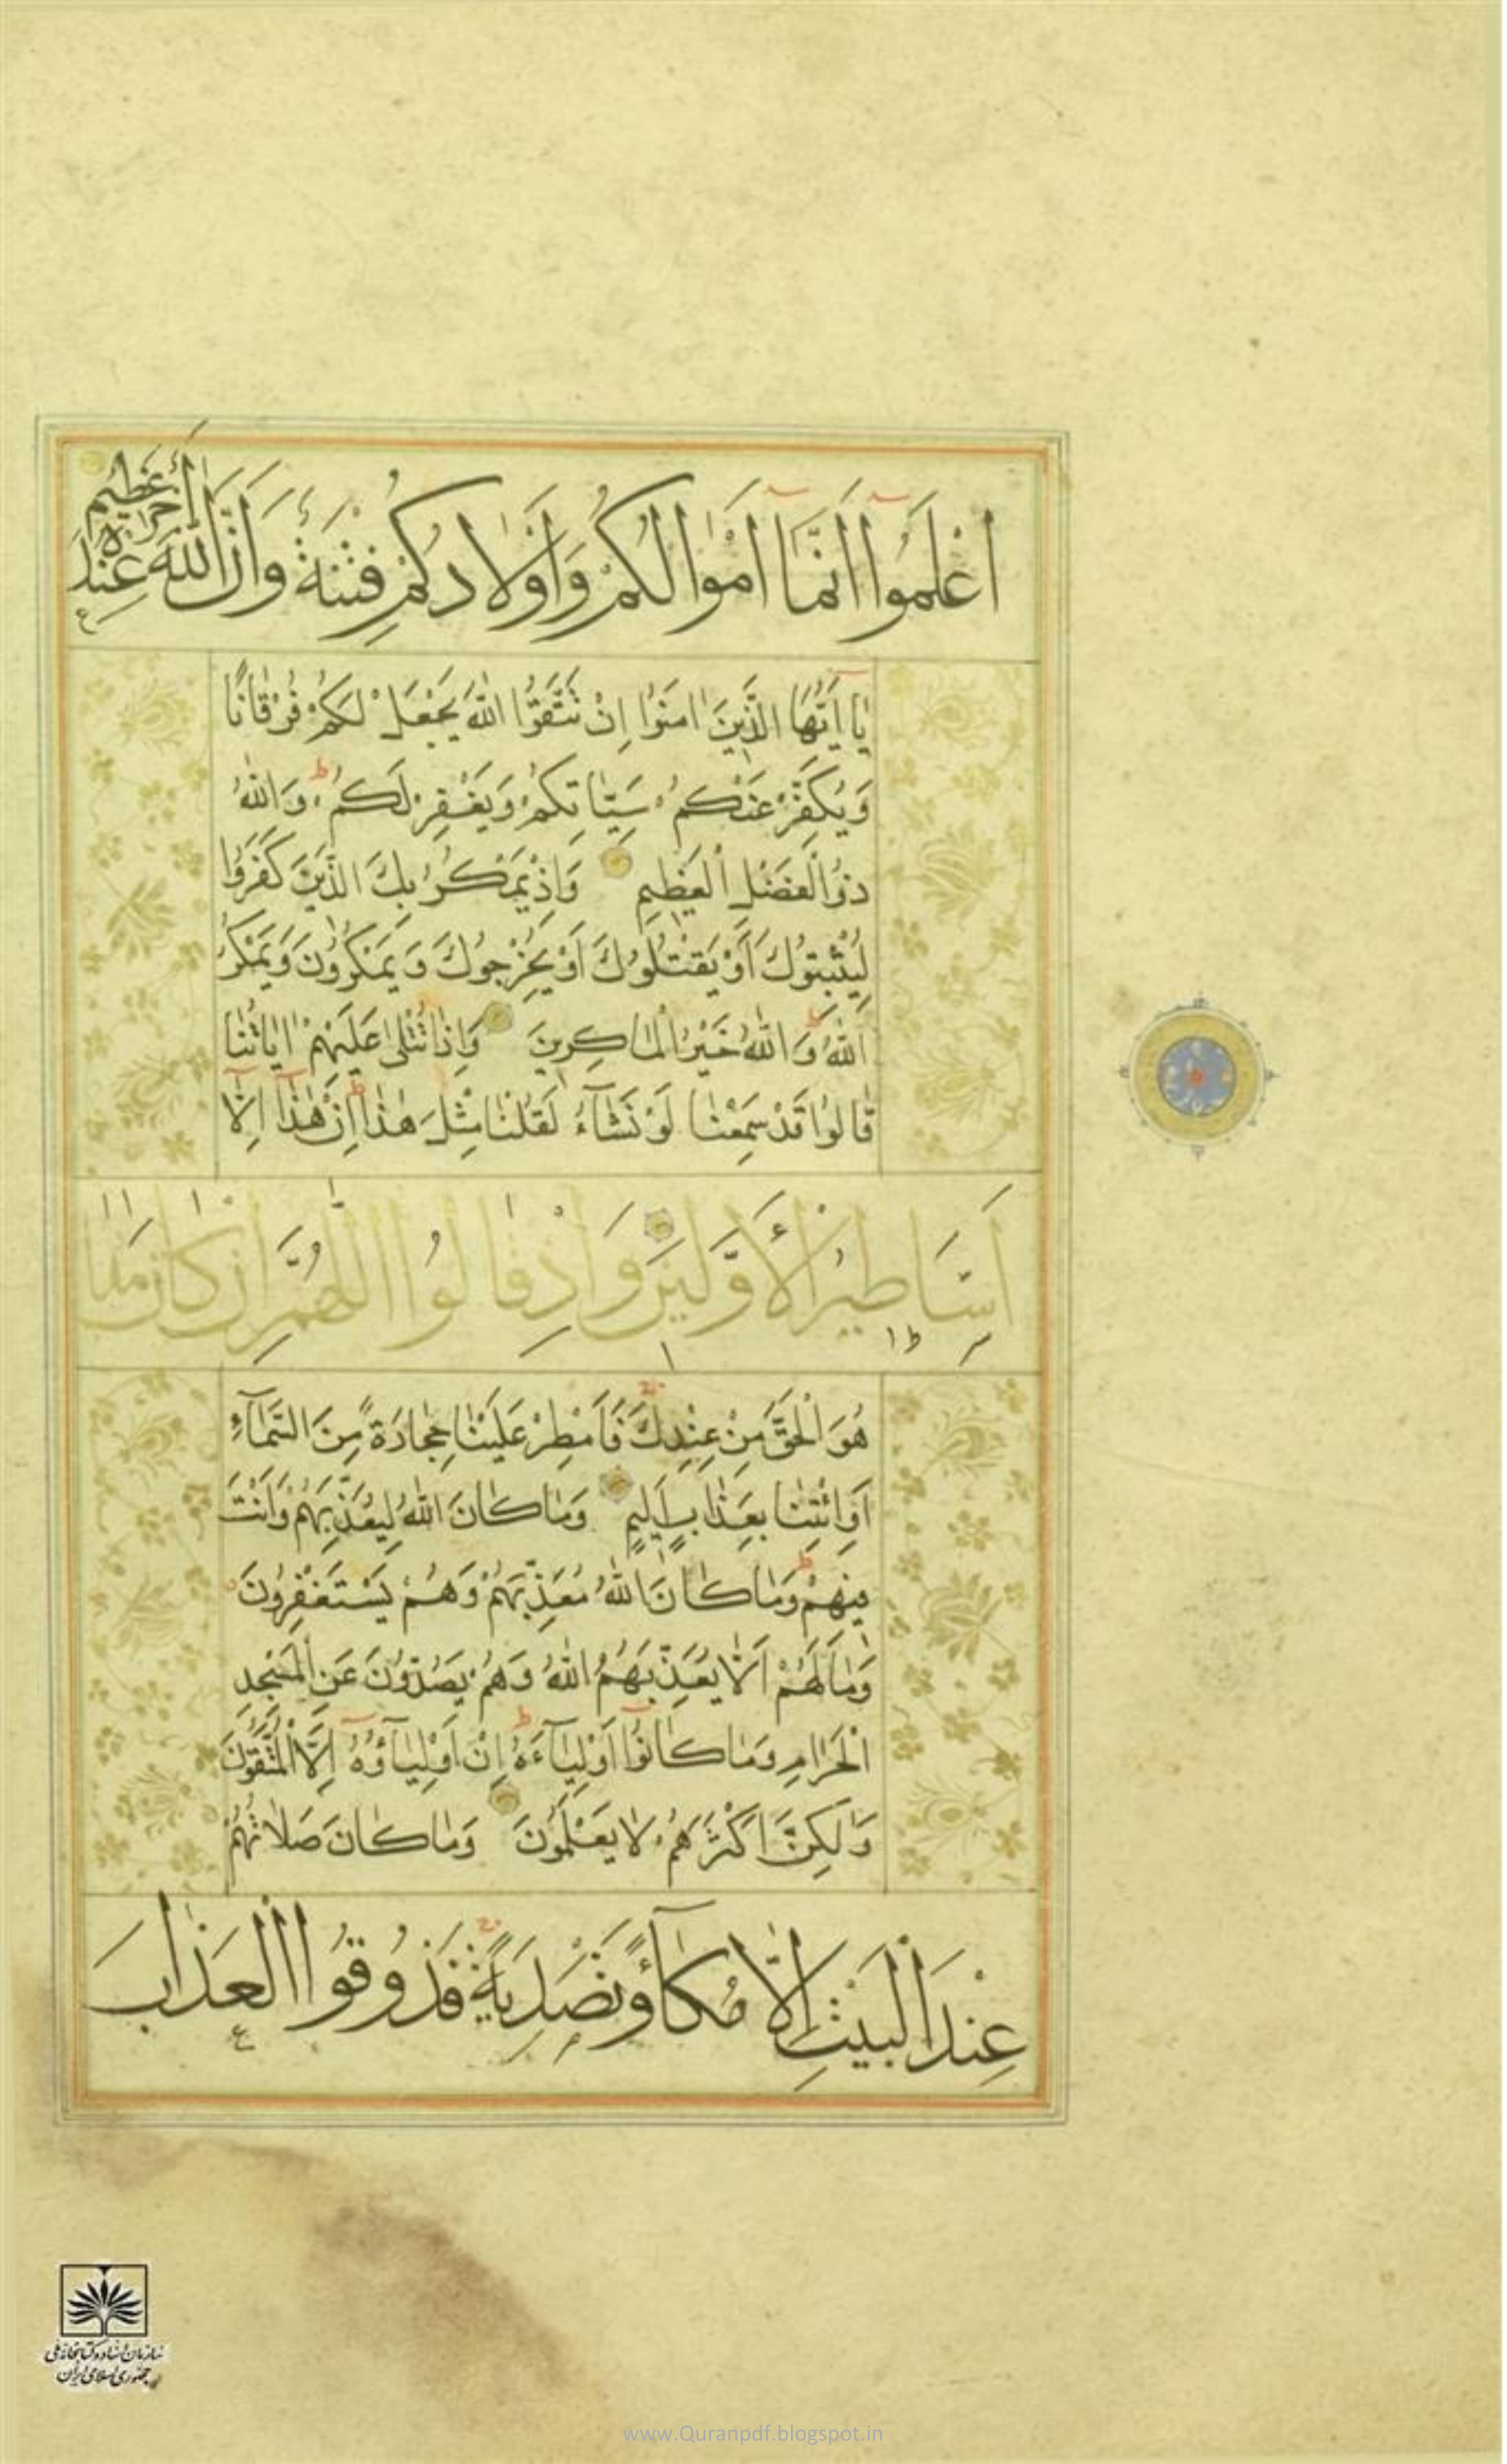 اعْلَمُوا أَنَّمَا أَمْوَالُكُمْ وَأَوْلَادُكُمْ فِتْنَةٌ وَأَنَّ اللَّهَ عِنْدَهُ أَجْرٌ عَظِيمٌ
يَا أَيُّهَا الَّذِينَ اٰمَنُوا اِنْ تَتَّقُوا اللّٰهَ يَجْعَلْ لَكُمْ فُرْقَانًا
وَيُكَفِّرْ عَنْكُمْ سَيِّاٰتِكُمْ وَيَغْفِرْ لَكُمْ ط وَاللّٰهُ
ذُو الْفَضْلِ الْعَظِيمِ وَاِذْ يَمْكُرُ بِكَ الَّذِينَ كَفَرُوا
لِيُثْبِتُوكَ اَوْ يَقْتُلُوكَ اَوْ يُخْرِجُوكَ وَيَمْكُرُونَ وَيَمْكُرُ
اللّٰهُ ط وَاللّٰهُ خَيْرُ الْمَاكِرِينَ وَاِذَا تُتْلٰى عَلَيْهِمْ اٰيَاتُنَا
قَالُوا قَدْ سَمِعْنَا لَوْ نَشَآءُ لَقُلْنَا مِثْلَ هٰذَا ط اِنْ هٰذَآ اِلَّآ
اَسَاطِيرُ الْأَوَّلِينَ وَاِذْ قَالُوا اللّٰهُمَّ اِنْ كَانَ هٰذَا
هُوَ الْحَقَّ مِنْ عِنْدِكَ فَاَمْطِرْ عَلَيْنَا حِجَارَةً مِنَ السَّمَآءِ
اَوِ ائْتِنَا بِعَذَابٍ اَلِيمٍ وَمَا كَانَ اللّٰهُ لِيُعَذِّبَهُمْ وَاَنْتَ
فِيهِمْ ط وَمَا كَانَ اللّٰهُ مُعَذِّبَهُمْ وَهُمْ يَسْتَغْفِرُونَ
وَمَا لَهُمْ اَلَّا يُعَذِّبَهُمُ اللّٰهُ وَهُمْ يَصُدُّونَ عَنِ الْمَسْجِدِ
الْحَرَامِ وَمَا كَانُوٓا اَوْلِيَآءَهُ ط اِنْ اَوْلِيَآؤُهُٓ اِلَّا الْمُتَّقُونَ
وَلٰكِنَّ اَكْثَرَهُمْ لَا يَعْلَمُونَ وَمَا كَانَ صَلَاتُهُمْ
عِنْدَ الْبَيْتِ اِلَّا مُكَآءً وَتَصْدِيَةً فَذُوقُوا الْعَذَابَ
سازمان اسناد و کتابخانه ملی
جمهوری اسلامی ایران
www.Quranpdf.blogspot.in